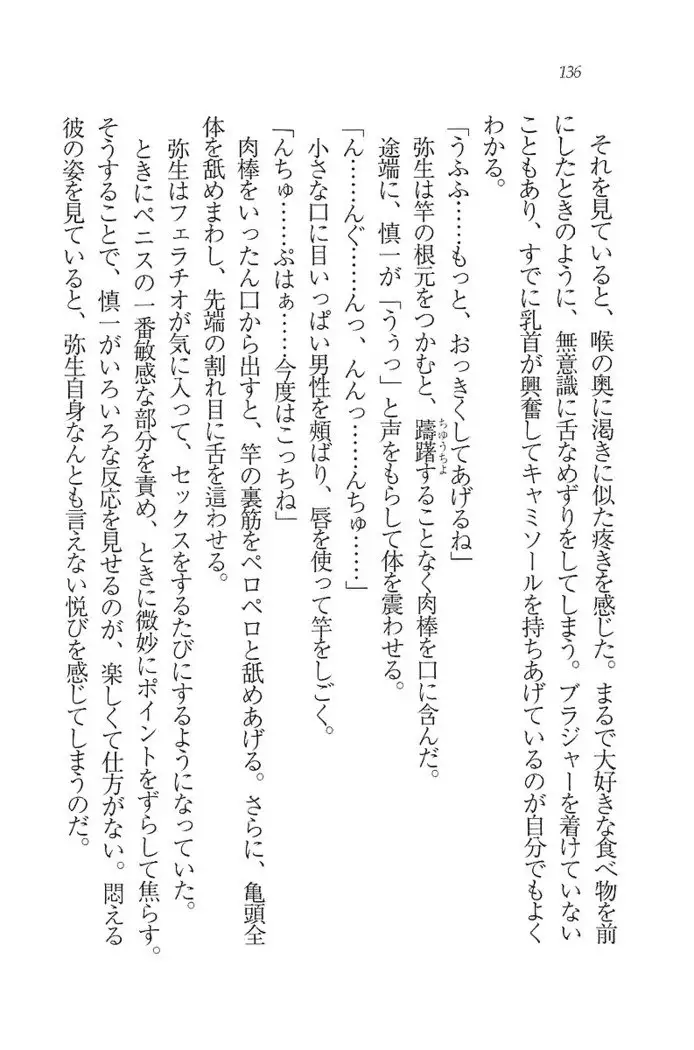 136
それを見ていると、喉の奥に渇きに似た疼きを感じた。まるで大好きな食べ物を前
にしたときのように、無意識に舌なめずりをしてしまう。ブラジャーを着けていない
こともあり、すでに乳首が興奮してキャミソールを持ちあげているのが自分でもよく
わかる。
「うふふ……もっと、おっきくしてあげるね」
弥生は竿の根元をつかむと、躊躇することなく肉棒を口に含んだ。
ちゅうちょ
途端に、慎一が「うぅっ」と声をもらして体を震わせる。
「ん……んぐ……んっ、んんっ……んちゅ……」
小さな口に目いっぱい男性を頬ばり、唇を使って竿をしごく。
「んちゅ……ぷはぁ……今度はこっちね」
肉棒をいったん口から出すと、竿の裏筋をペロペロと舐めあげる。さらに、亀頭全
体を舐めまわし、先端の割れ目に舌を這わせる。
弥生はフェラチオが気に入って、セックスをするたびにするようになっていた。
ときにペニスの一番敏感な部分を責め、ときに微妙にポイントをずらして焦らす。
そうすることで、慎一がいろいろな反応を見せるのが、楽しくて仕方がない。悶える
彼の姿を見ていると、弥生自身なんとも言えない悦びを感じてしまうのだ。